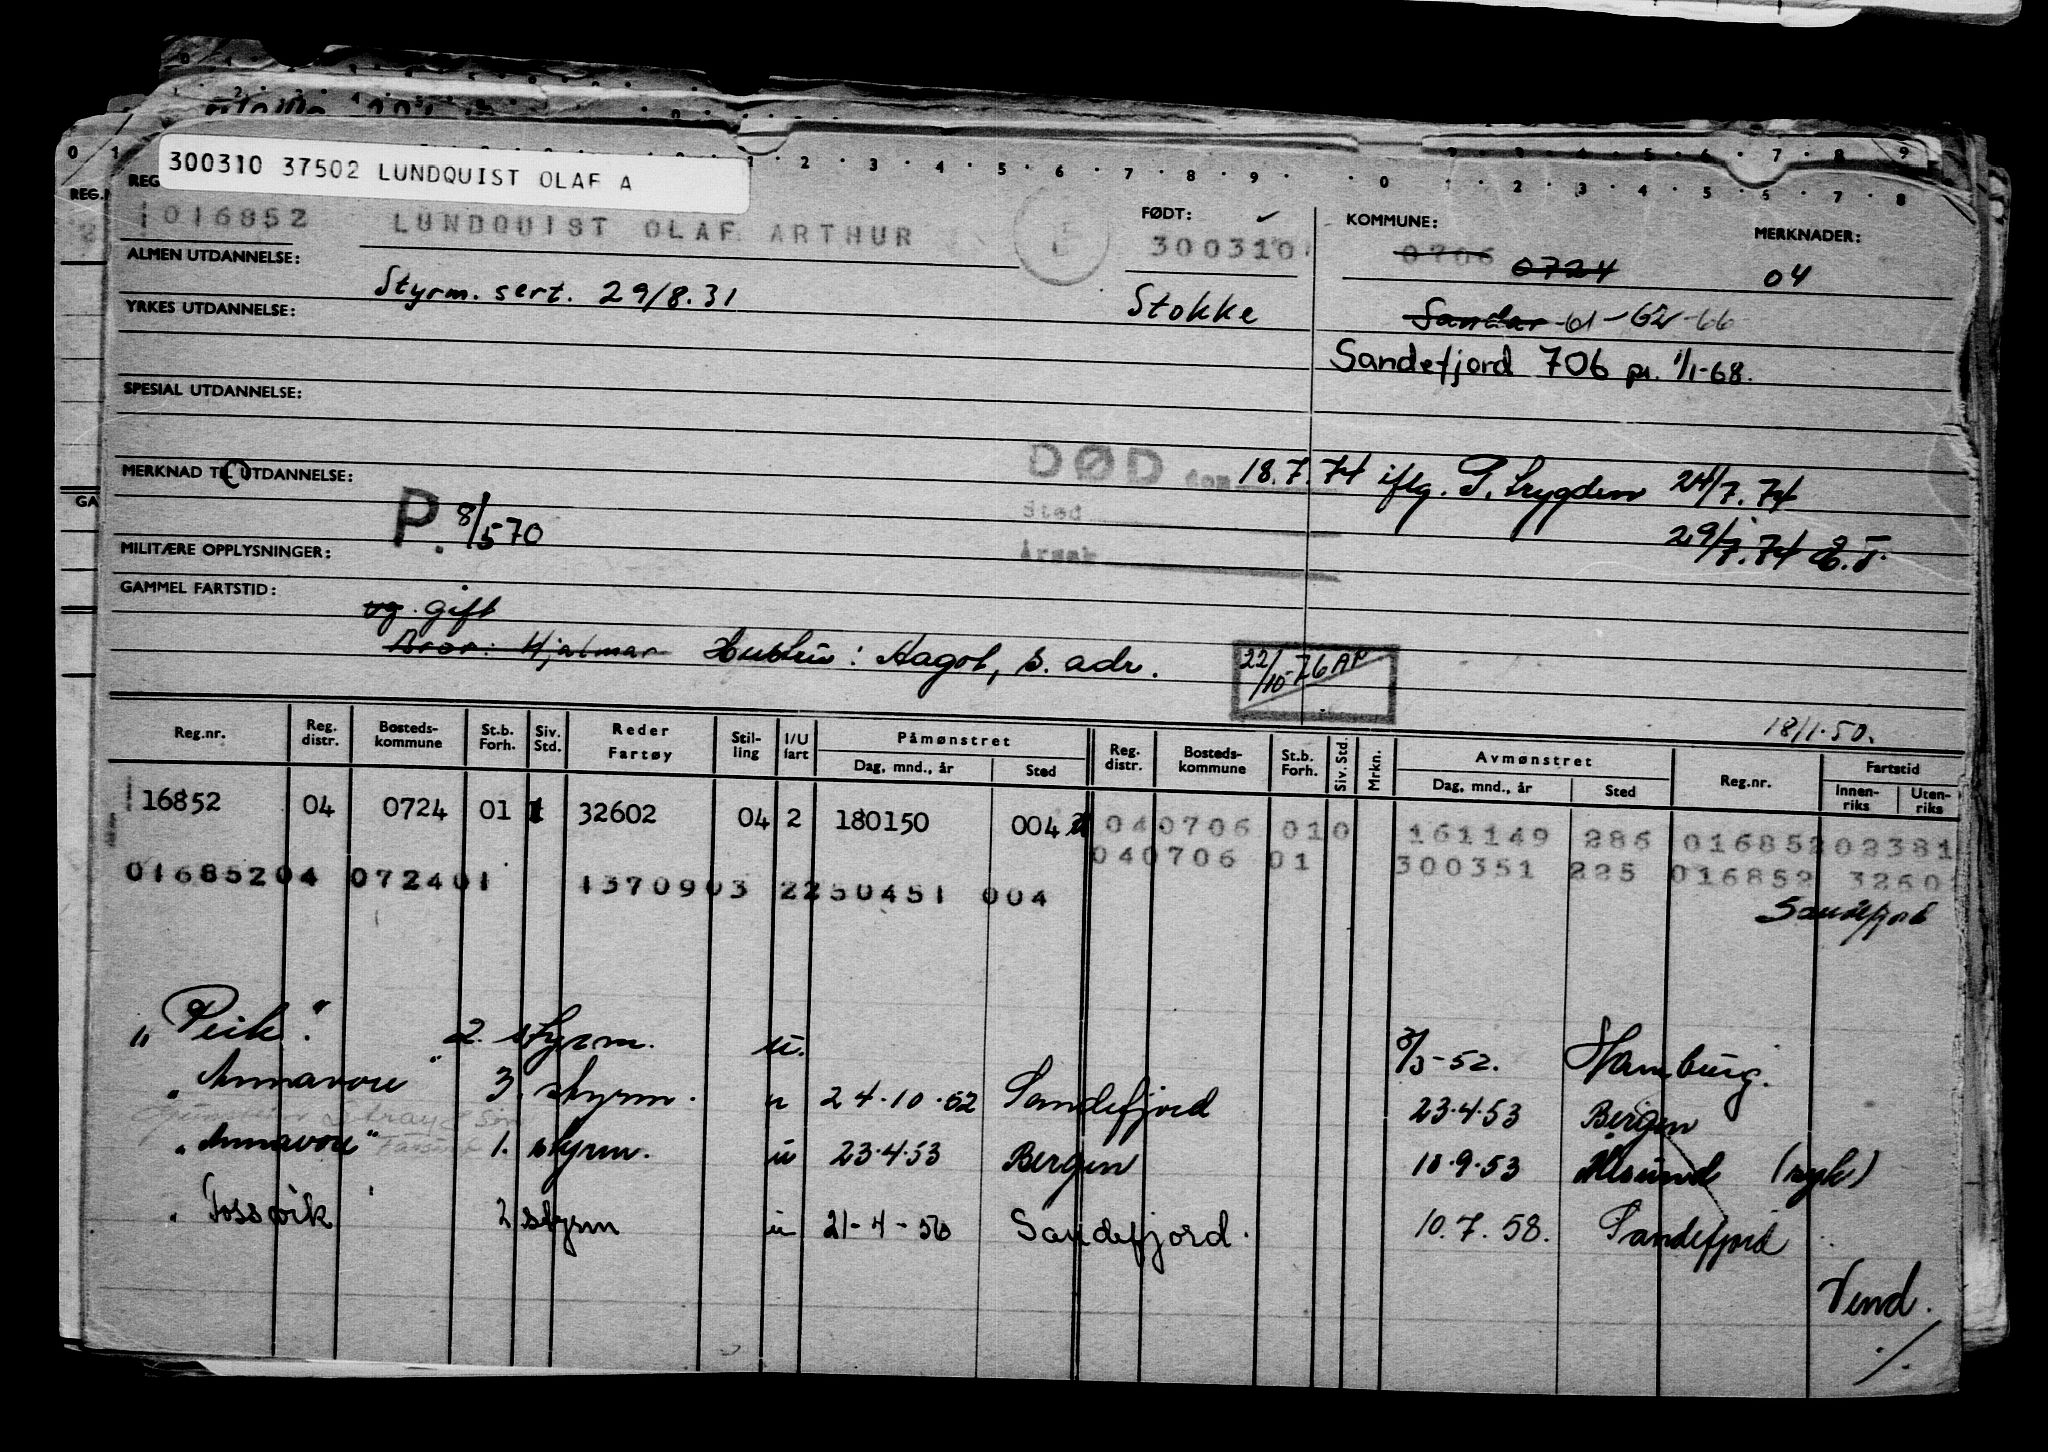 300310 37502 LUNDQUIST OLAF A
1016852 LUNDQUIST OLAF ARTHUR FØDT: 300310 KOMMUNE: 0706 0724 MERKNADER: 04
ALMEN UTDANNELSE: Styrm. sert. 29/8.31 Stokke Sandar 61-62-66
YRKES UTDANNELSE:
Sandefjord 706 pr. 1/1-68.
SPESIAL UTDANNELSE:
MERKNAD TIL UTDANNELSE: DØD den 18.7.74 iflg. P. trygden 24/7.74
P. 8/5 70 Sted 29/7.74 E.T.
MILITÆRE OPPLYSNINGER: Årsak
GAMMEL FARTSTID:
ug. gift
Bror: Hjalmar Hustru: Aagot, s. adr. 22/10-76 AP
18/1.50.
Reg.nr. Reg. distr. Bosteds-kommune St.b. Forh. Siv. Std. Reder Fartøy Stil-ling I/U fart Påmønstret Dag, mnd., år Sted Reg. distr. Bosteds-kommune St.b. Forh. Siv. Std. Mrkn. Avmønstret Dag, mnd., år Sted Reg.nr. Fartstid Innen-riks Uten-riks
16852 04 0724 01 1 32602 04 2 180150 004 040706 010 161149 286 016852 02381
040706 01 300351 225 016852 3260
01685204 072401 1370903 2250451 004
Sandefjord
"Peik". 2. styrm. u. 3-52. Hamburg.
"Annavore" 3. styrm. u 24.10.52 Sandefjord 23.4.53 Bergen
"Annavore" 1. styrm. u 23.4.53 Bergen 10.9.53 Ålesund (syk)
"Fossvik" 2 styrm u 21-4-56 Sandefjord. 10.7.58. Sandefjord
Vend.
./.